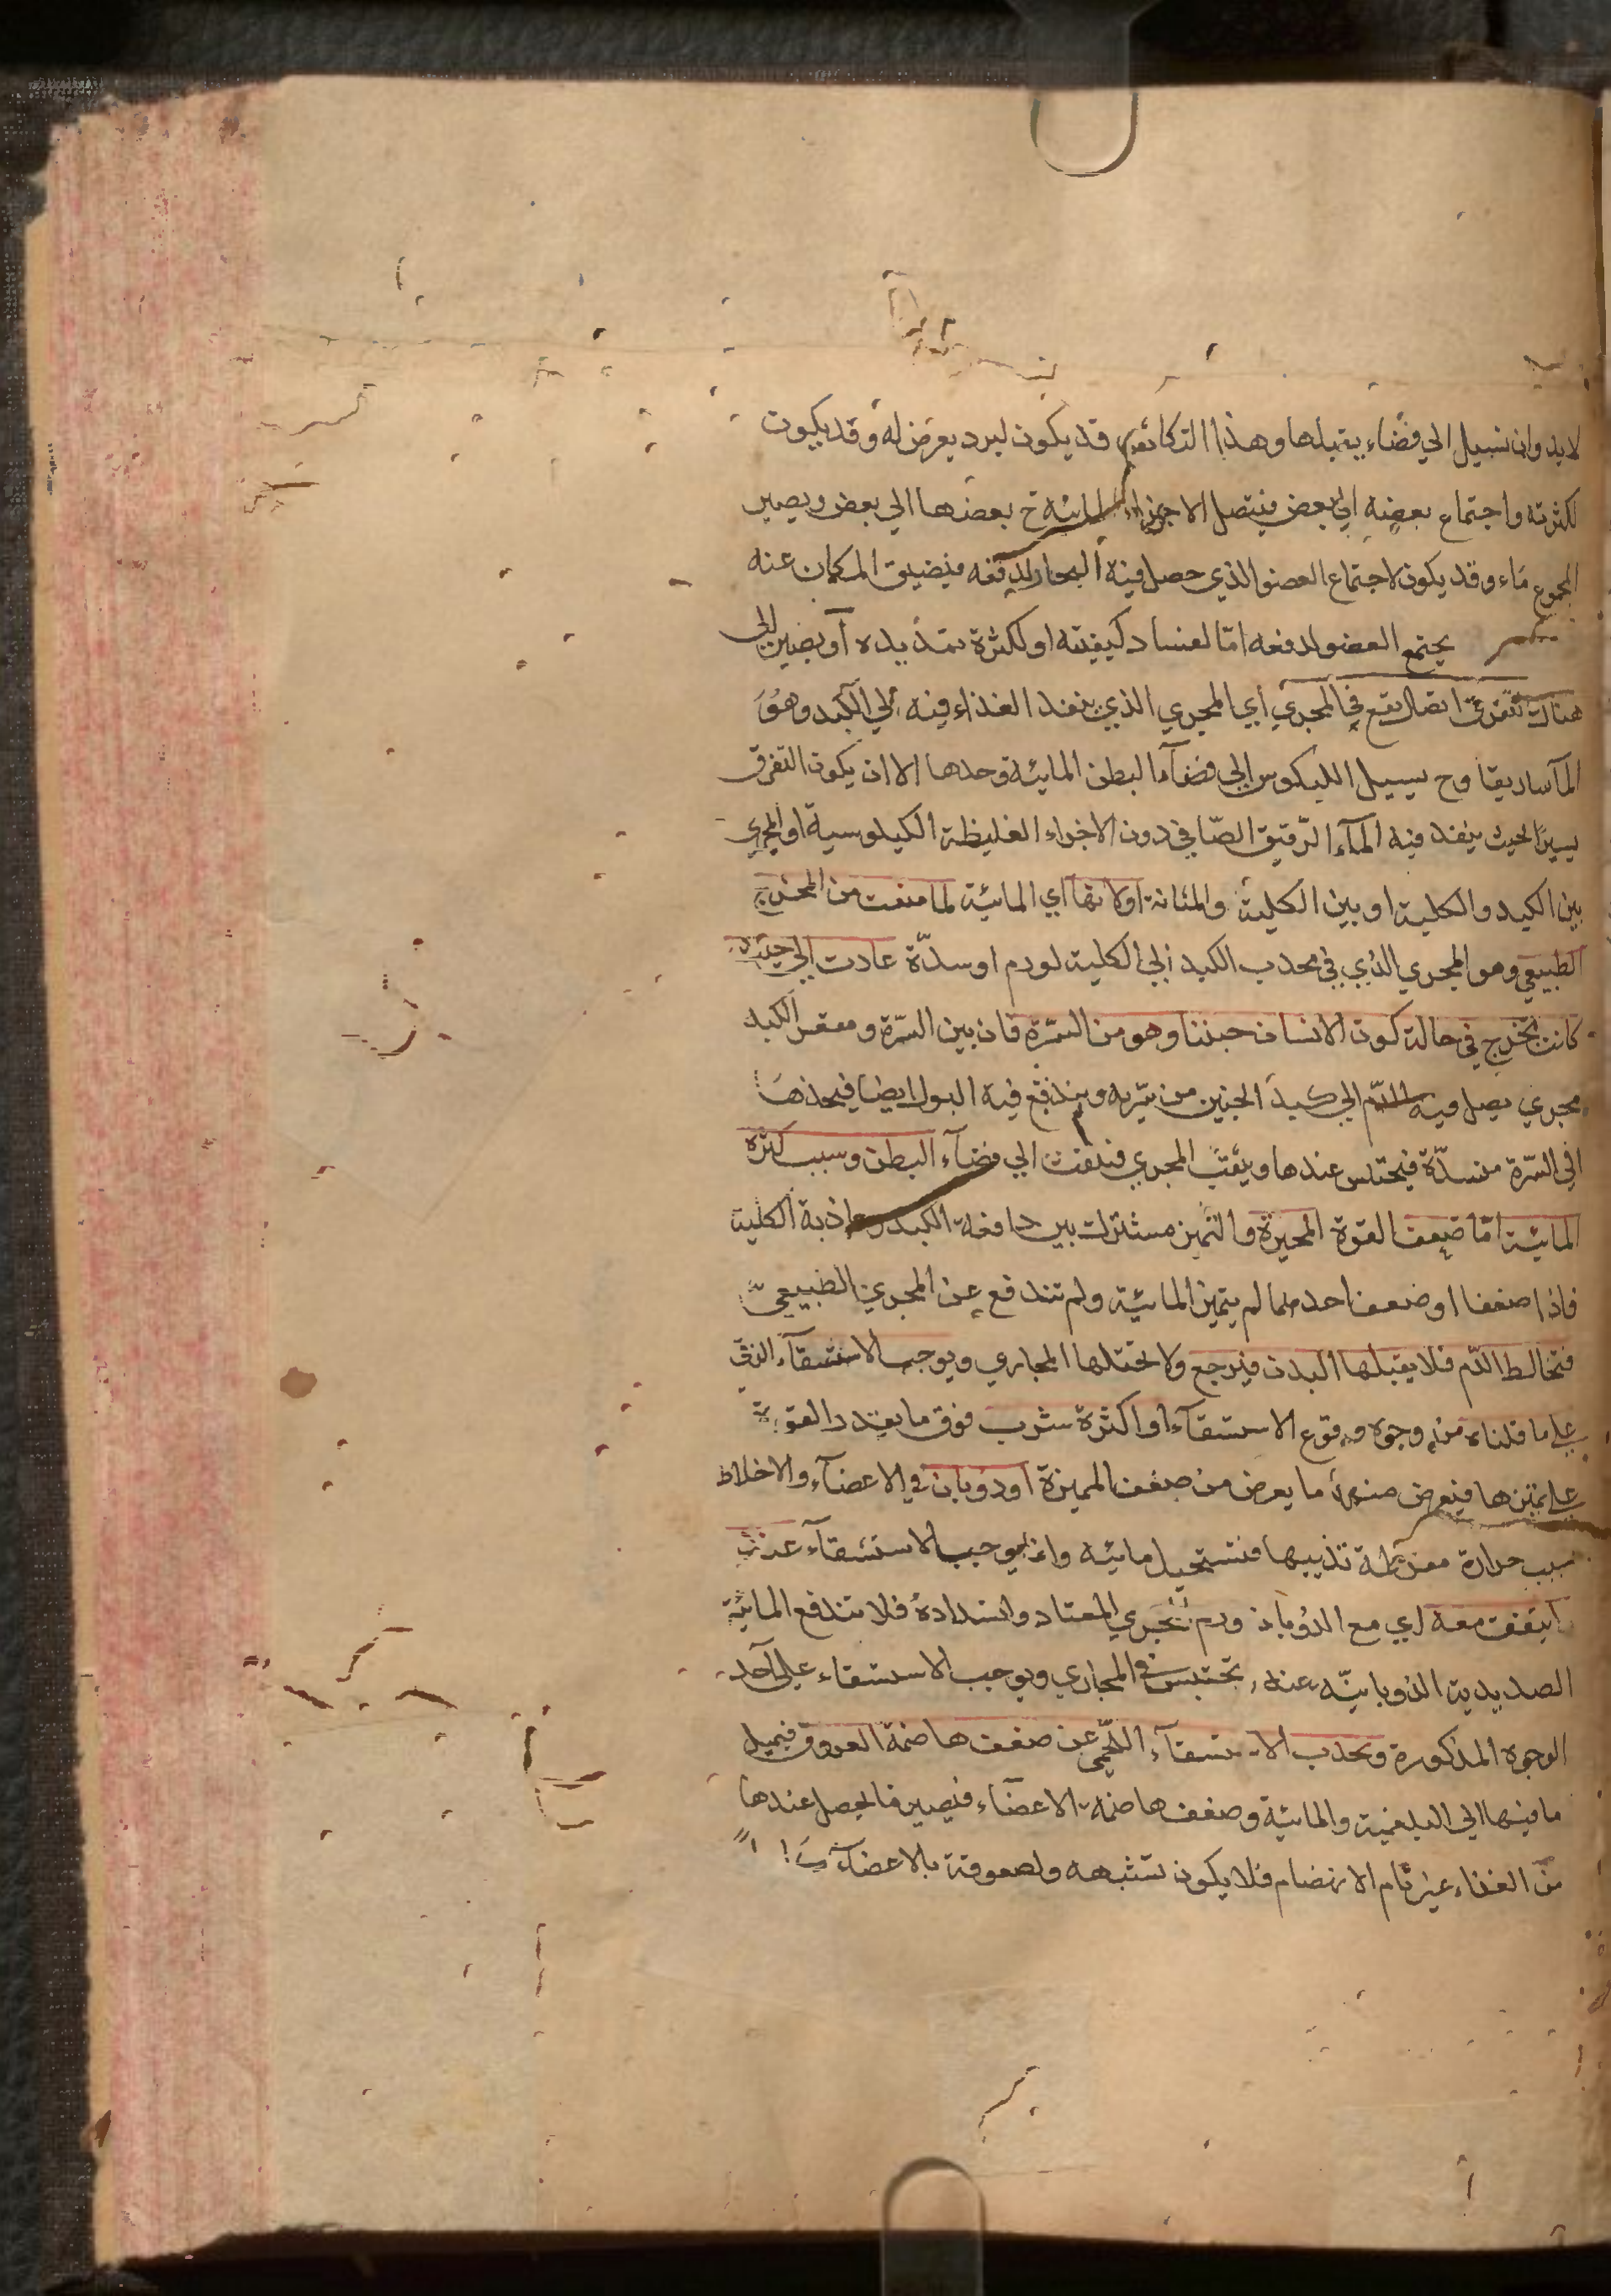 لابد وان تسيل الي فضاء يقبلها وهذا التكاثف قد يكون لبرد يعرض له وقد يكون
لكثرته واجتماع بعضه الي بعض فيتصل الاجزاء المائية ح بعضها الي بعض ويصير
المجموع ماء وقد يكون لاجتماع العضو الذي حصل فيه البخار لدفعه فيضيق المكان عنه
يجتمع العضو لدفعه امّا لفساد كيفيته او لكثرة تمديده او يصير الي
هناك لتفرق اتصال يقع في المجري اي المجري الذي ينفد الغذاء فيه الي الكبد وهو
الماساريقا وح يسيل الليكوس الي فضاء البطن المائية وحدها الا ان يكون التفرق
يسيرًا بحيث ينفد فيه الماء الرّقيق الصّافي دون الاجزاء الغليظة الكيلوسية او المجري
بين الكبد والكلية او بين الكلية والمثانة او لانها اي المائية لما منعت من المخرج
الطبيعي وهو المجري الذي في محدب الكبد الي الكلية لورم او سدّة عادت الي حيث
كانت تخرج في حالة كون الانسان جنينا وهو من السّرة فان بين السّرة ومقعر الكبد
مجري يصل فيه الدّم الي كبد الجنين من سرّته ويندفع فيه البول ايضا فيجدها
اي السّرة منسدّة فيحتبس عندها ويفتق المجري فيدفعت الي فضاء البطن وسبب كثرة
المائية امّا ضعف القوة المميزة والتميز مشترك بين دافعة الكبد وجاذبة الكلية
فاذا ضعفا او ضعف احدهما لم يتميز المائية ولم تندفع عن المجري الطبيعيّ
فتخالط الدّم فلا يقبلها البدن فيرجع ولا تحتملها المجاري ويوجب الاستسقاء الزقي
علي ما قلناه من وجوه وقوع الاستسقاء او اكثرة شرب فوق ما يقدر القوة
علي تميزها فيعرض منه ما يعرض من ضعف المميزة او ذوبان في الاعضاء والاخلاط
بسبب حرارة مفرطة تذيبها فتستحيل مائية وانما يوجب الاستسقاء عدن
اتفقت معه اي مع الذوبان ورم المجري المعتاد وانسداده فلا تندفع المائية
الصديدية الذوبانيّة عنه تحتبس في المجاري ويوجب الاستسقاء علي احد
الوجوه المذكورة ويحدث الاستسقاء اللّحمي عن ضعف هاضمة العروق فيميل
ما فيها الي البلغمية والمائية وضعف هاضمة الاعضاء فيصير ما يحصل عندها
من الغذاء غير تام الانهضام فلا يكون تشبهه ولصوقه بالاعضاء